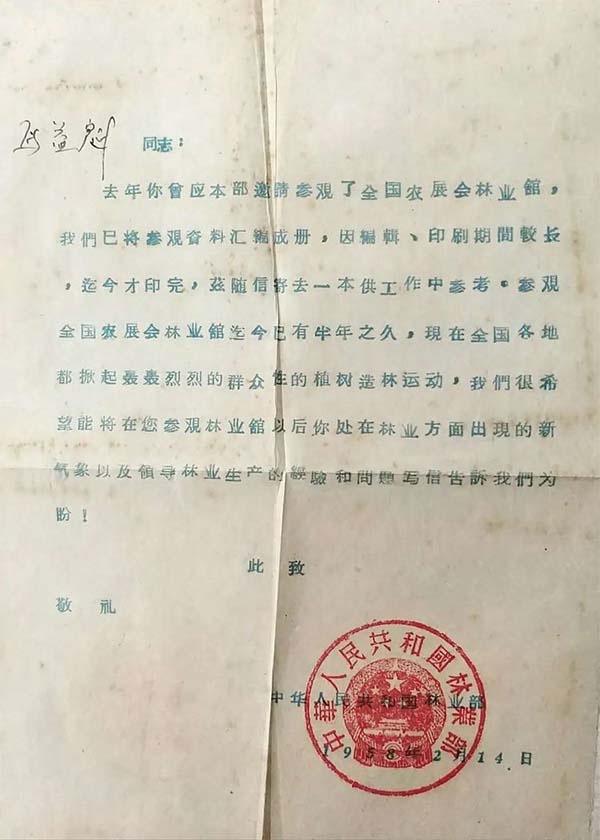 益魁 同志：
去年你曾应本部邀請参观了全国农展会林业館，
我們已将参观資料汇編成册，因編輯、印刷期間較长
，迄今才印完，兹随信寄去一本供工作中参考。参观
全国农展会林业館迄今已有半年之久，現在全国各地
都掀起轰轰烈烈的群众性的植树造林运动，我們很希
望能将在您参观林业館以后你处在林业方面出現的新
气象以及領导林业生产的經驗和問題写信告訴我們为
盼！
此致
敬礼
中华人民共和国林业部
1958年2月14日
中華人民共和國林業部